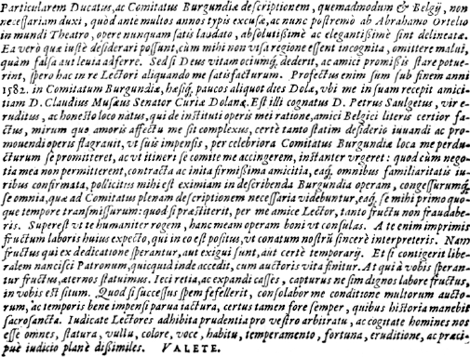 Particularem Ducatus, ac Comitatus Burgundiæ descriptionem, quemadmodum & Belgij, non
necessariam duxi, quòd ante multos annos typis excusæ, ac nunc postremò ab Abrahamo Ortelio
in mundi Theatro, opere nunquam satis laudato, absolutißimè ac elegantißimè sint delineatæ.
Ea verò quæ iustè desiderari possunt, cùm mihi non visa regione essent incognita, omittere malui,
quàm falsa aut leuia adferre. Sed si Deus vitam ociuḿq; dederit, ac amici promißis stare potue-
rint, spero hac in re Lectori aliquando me satisfacturum. Profectus enim sum sub finem anni
1582. in Comitatum Burgundiæ, hæsiq́; paucos aliquot dies Dolæ, vbi me in suam recepit amici-
tiam D. Claudius Musæus Senator Curiæ Dolanæ. Est illi cognatus D. Petrus Saulgetus, vir e-
ruditus, ac honesto loco natus, qui de instituti operis mei ratione, amici Belgici literis certior fa-
ctus, mirum quo amoris affectu me sit complexus, certè tanto statim desiderio iuuandi ac pro-
mouendi operis flagrauit, vt suis impensis, per celebriora Comitatus Burgundiæ loca me perdu-
cturum se promitteret, ac vt itineri se comite me accingerem, instanter vrgeret: quod cùm nego-
tia mea non permitterent, contracta ac inita firmißima amicitia, eaq́; omnibus familiaritatis iu-
ribus confirmata, pollicitus mihi est eximiam in describenda Burgundia operam, congesturuḿq;
se omnia, quæ ad Comitatus plenam descriptionem necessaria videbuntur, eaq́; se mihi primo quo-
que tempore transmissurum: quod si præstiterit, per me amice Lector, tanto fructu non fraudabe-
ris. Superest vt te humaniter rogem, hanc meam operam boni vt consulas. A te enim imprimis
fructum laboris huius expecto, qui in eo est positus, vt conatum nostrũ sincerè interpreteris. Nam
fructus qui ex dedicatione sperantur, aut exigui sunt, aut certè temporarij. Et si contigerit libe-
ralem nancisci Patronum, quicquid inde accedit, cum auctoris vita finitur. At quià vobis speran-
tur fructus, æternos statuimus. Ieci retia, ac expandi casses, capturus ne sim dignos labore fructus,
in vobis est situm. Quod si successus spem fefellerit, consolabor me conditione multorum aucto-
rum, ac temporis bene impensi parua iactura, certus tamen fore semper, quibus historia manebit
sacrosancta. Iudicate Lectores adhibita prudentia pro vestro arbitratu, ac cogitate homines nos
esse omnes, statura, vultu, colore, voce, habitu, temperamento, fortuna, eruditione, ac præci-
puè iudicio planè dißimiles. VALETE.